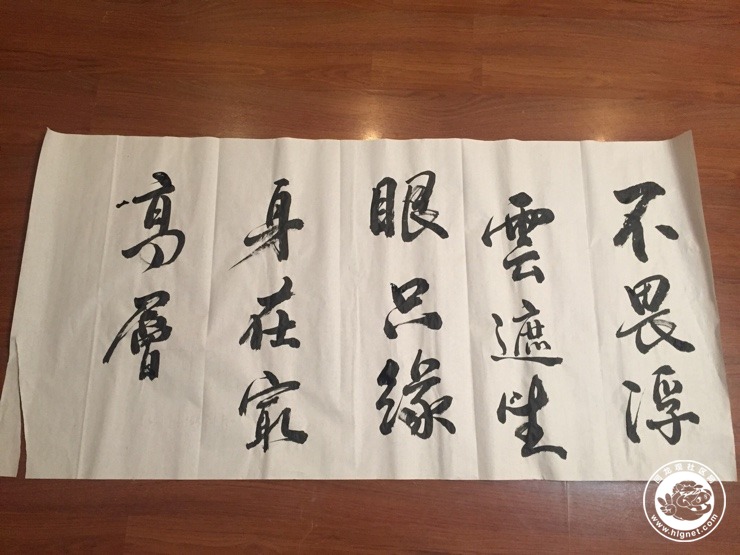 不畏浮
雲遮望
眼只緣
身在最
高層
回龙观社区网
www.hlgnet.com